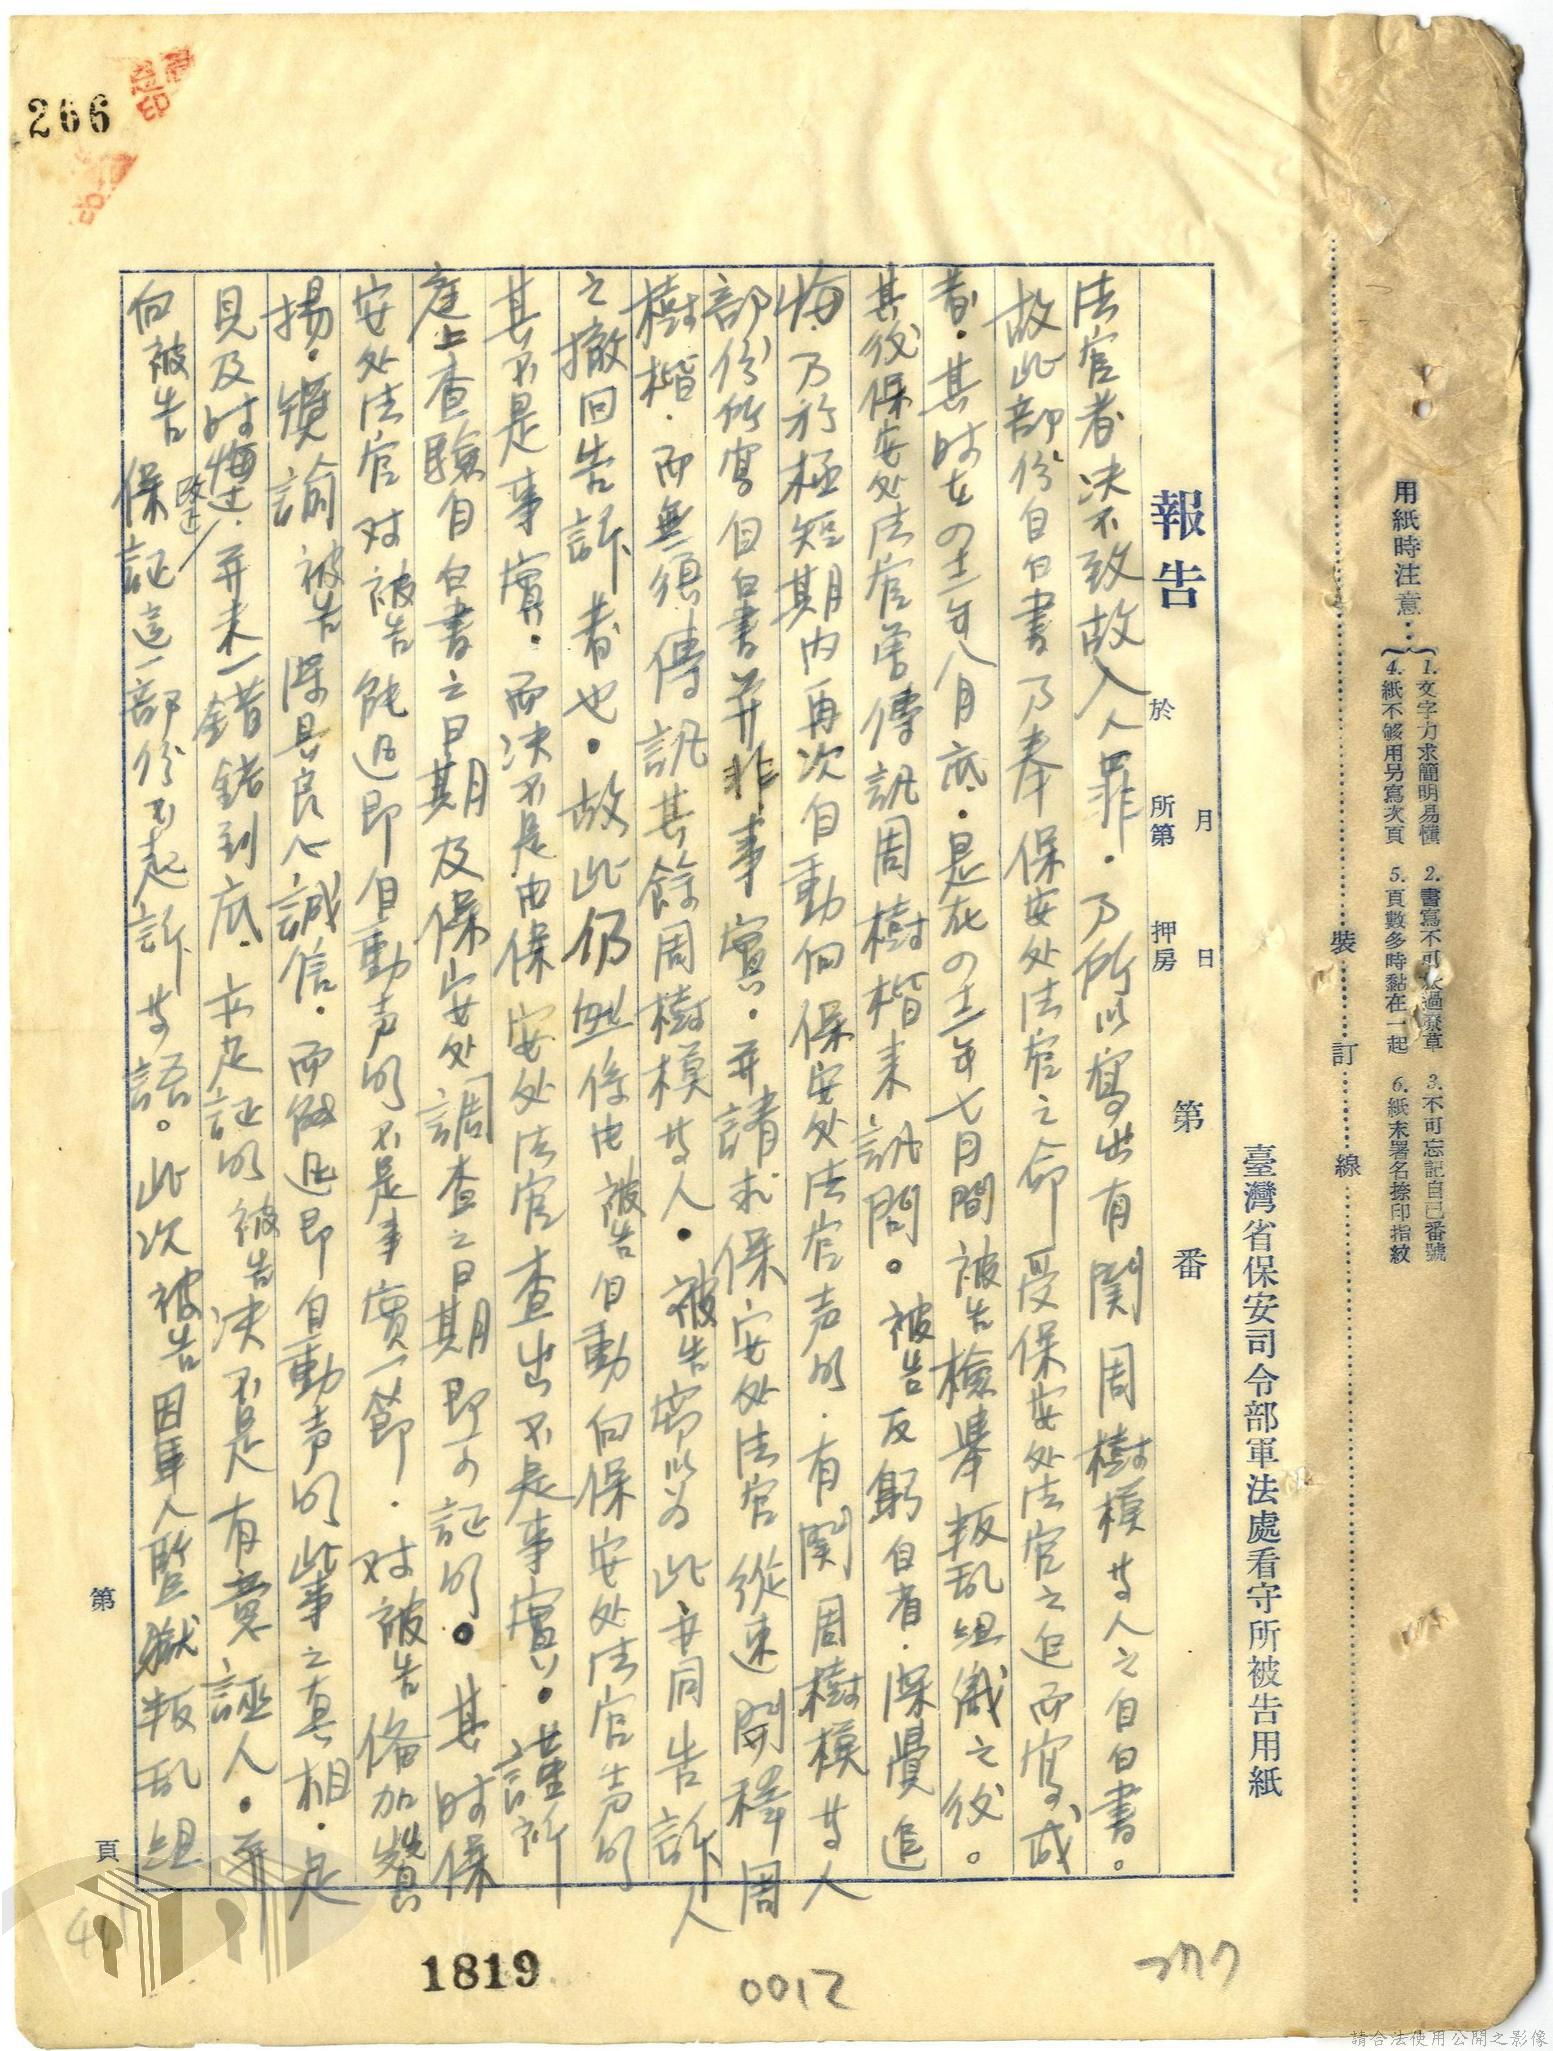 266
用紙時注意：
1. 文字力求簡明易懂 2. 書寫不可太過潦草 3. 不可忘記自己番號
4. 紙不够用另寫次頁 5. 頁數多時黏在一起 6. 紙末署名捺印指紋
裝 訂 線
臺灣省保安司令部軍法處看守所被告用紙
月 日
報告 於 所第 押房 第 番
法官者决不致故入人罪．乃所以寫出有関周樹模等人之自白書。
故此部份自白書乃奉保安处法官之命受保安处法官之迫而寫成
者．其时在四十二年八月底．是在四十二年七月間被告檢舉叛乱组織之後。
其後保安处法官曾傳訊周樹楷来訊問。被告反躬自省．深覺追
悔．乃於極短期内再次自動向保安处法官声明．有関周樹模等人
部份所寫自白書并非事實．并請求保安处法官從速開釋周
樹楷．而無須傳訊其餘周樹模等人．被告鄙以为此亦同告訴人
之撤回告訴者也．故此仍無係由被告自動向保安处法官声明
其不是事實．而决不是由保安处法官查出不是事實．謹所
庭上查驗自白書之日期及保安处調查之日期即可証明。其时保
安处法官对被告能迅即自動声明不是事實一節．对被告俻加贊
揚．獎諭被告深具良心誠信．而能迅即自動声明此事之真相．是
見及时悔过．并未一錯錯到底．亦足証明被告决不是有意誣人．并
改过
向被告保証這一部份不起訴等語。此次被告因軍人監獄叛乱组
第 頁
1819
0012
277
請合法使用公開之影像